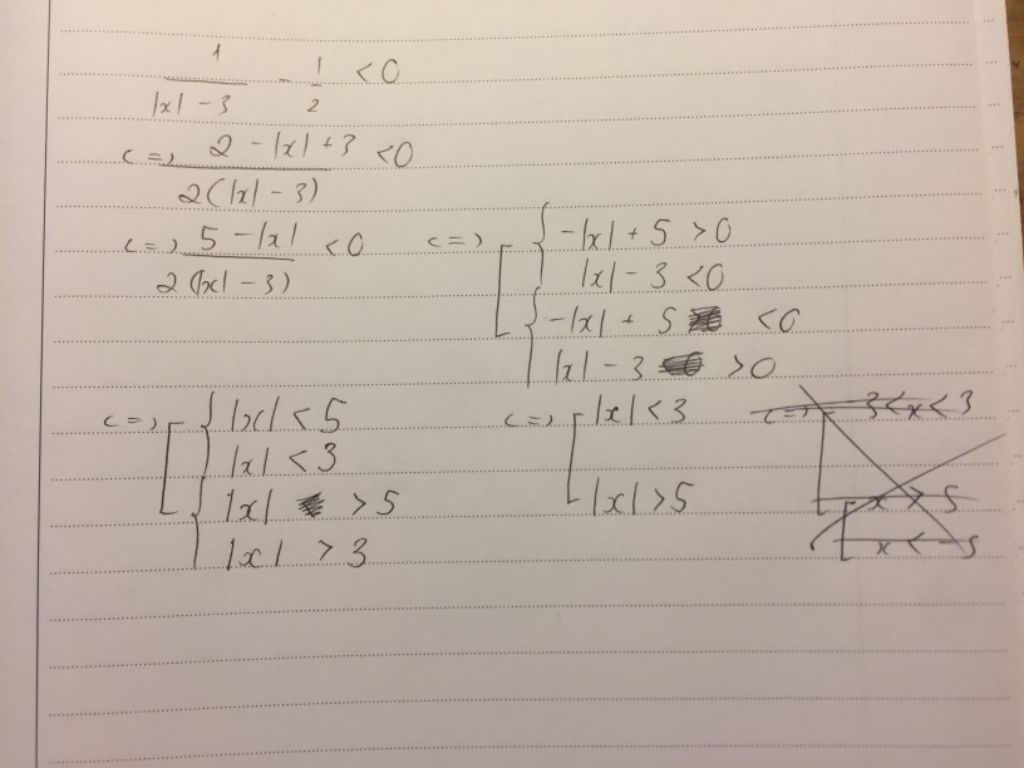 1/(|x| - 3) - 1/2 < 0
<=> (2 - |x| + 3)/(2(|x| - 3)) < 0
<=> (5 - |x|)/(2(|x| - 3)) < 0 <=> [ { -|x| + 5 > 0
|x| - 3 < 0
{ -|x| + 5 < 0
|x| - 3 > 0
<=> [ { |x| < 5 <=> [ |x| < 3 <=> [ -3 < x < 3
|x| < 3
{ |x| > 5 |x| > 5 [ x > 5
|x| > 3 x < -5